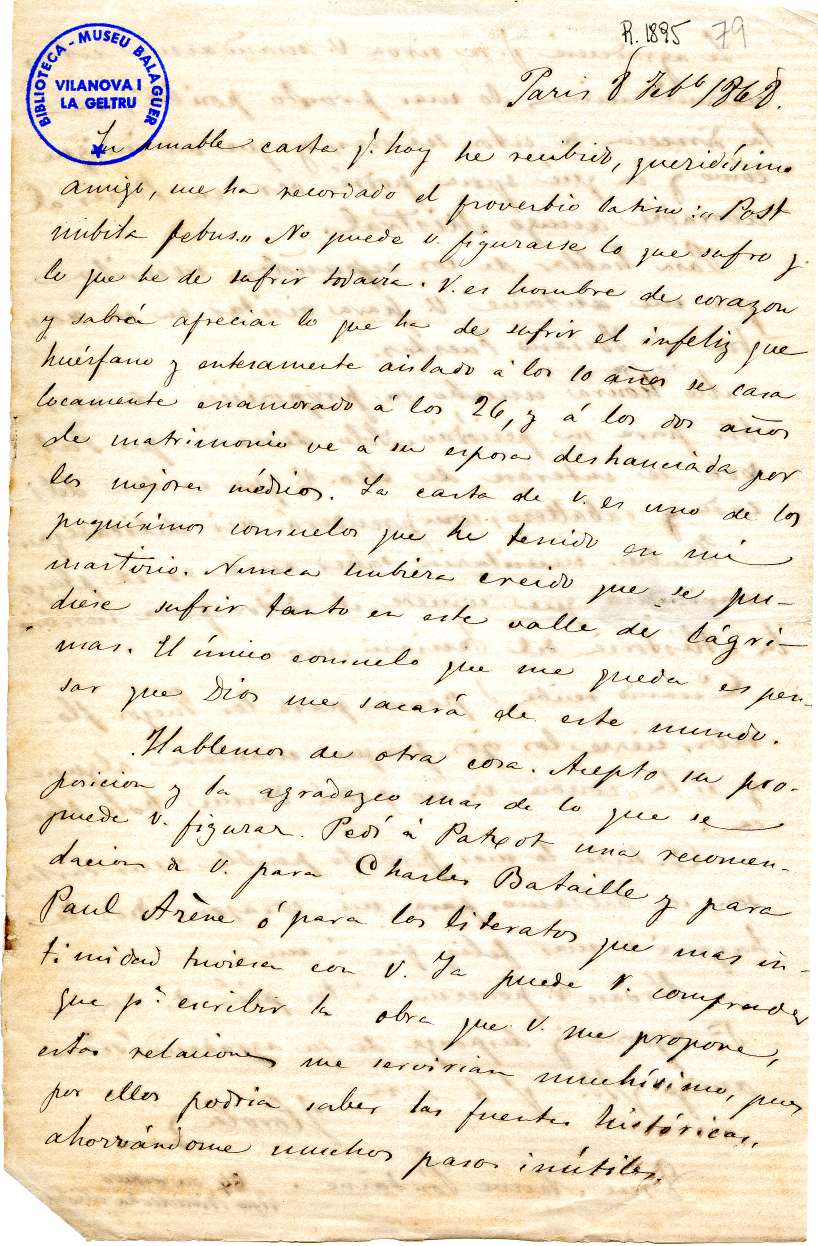 R. 1895 79
BIBLIOTECA - MUSEU BALAGUER
VILANOVA I
LA GELTRU
Paris 8 Feb.º 1868.
Su amable carta q.e hoy he recibido, queridísimo
amigo, me ha recordado el proverbio latino: "Post
nubila febus" No puede V. figurarse lo que sufro y
lo que he de sufrir todavía. V. es hombre de corazon
y sabrá apreciar lo que ha de sufrir el infeliz que
huérfano y enteramente aislado á los 10 años se casa
locamente enamorado á los 26, y á los dos años
de matrimonio ve á su esposa deshauciada por
los mejores médicos. La carta de V. es uno de los
poquísimos consuelos que he tenido en mi
martirio. Nunca hubiera creido que se pu-
diese sufrir tanto en este valle de lágri-
mas. El único consuelo que me queda es pen-
sar que Dios me sacará de este mundo.
Hablemos de otra cosa. Acepto su pro-
posicion y la agradezco mas de lo que se
puede V. figurar. Pedí á Patxot una recomen-
dacion de V. para Charles Bataille y para
Paul Arène ó para los literatos que mas in-
timidad tuviesen con V. Ya puede V. comprender
que p.a escribir la obra que V. me propone,
estas relaciones me servirian muchísimo, pues
por ellos podria saber las fuentes históricas,
ahorrándome muchos pasos inútiles.